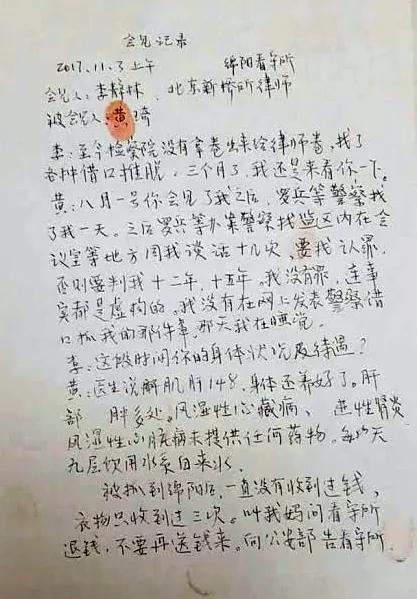 会见记录
2017.11.3 上午 绵阳看守所
会见人：李静林 北京新桥所律师
被会见人：黄琦
李：至今检察院没有拿卷出来给律师看，找了
各种借口推脱，三个月了，我还是来看你一下。
黄：八月一号你会见了我之后，罗兵等警察找
了我一天。之后罗兵等办案警察找监区内在会
议室等地方同我谈话十几次，要我认罪，
否则要判我十二年，十五年。我没有罪，连事
实都是虚构的。我没有在网上发表警察借
口抓我的那件事，那天我在睡觉。
李：这段时间你的身体状况及待遇？
黄：医生说解肌肝148，身体还养好了。肝
部 肿多处，风湿性心藏病、 性肾炎
风湿性心脏病未提供任何药物。每 天
九层饮用水系自来水。
被抓到绵阳后，一直没有收到过钱、
衣物只收到过三次。叫我妈问看守所
退钱，不要再送钱来。向公安部告看守所